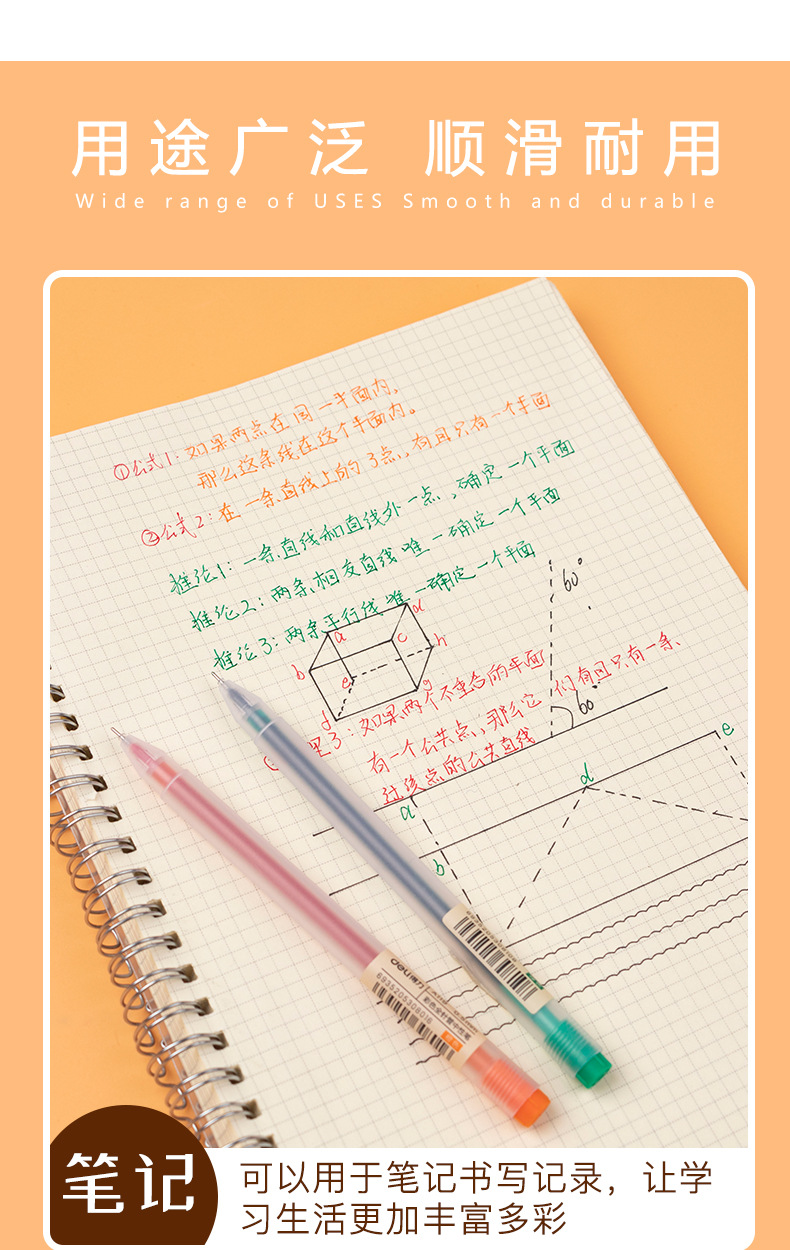 用途广泛 顺滑耐用
Wide range of USES Smooth and durable
①公式1:如果两点在同一平面内,
那么这条线在这个平面内。
②公式2:在一条直线上的3点,有且只有一个平面
推论1:一条直线和直线外一点,确定一个平面
推论2:两条相交直线唯一确定一个平面
推论3:两条平行线唯一确定一个平面
60°
a
d
c
h
b
e
g
d
里3:如果两个不重合的平面
有一个公共点,那么它们有且只有一条
过该点的公共直线
60°
e
d
a
b
deli得力
彩色全针管中性笔
6935205308016
笔记
可以用于笔记书写记录，让学
习生活更加丰富多彩